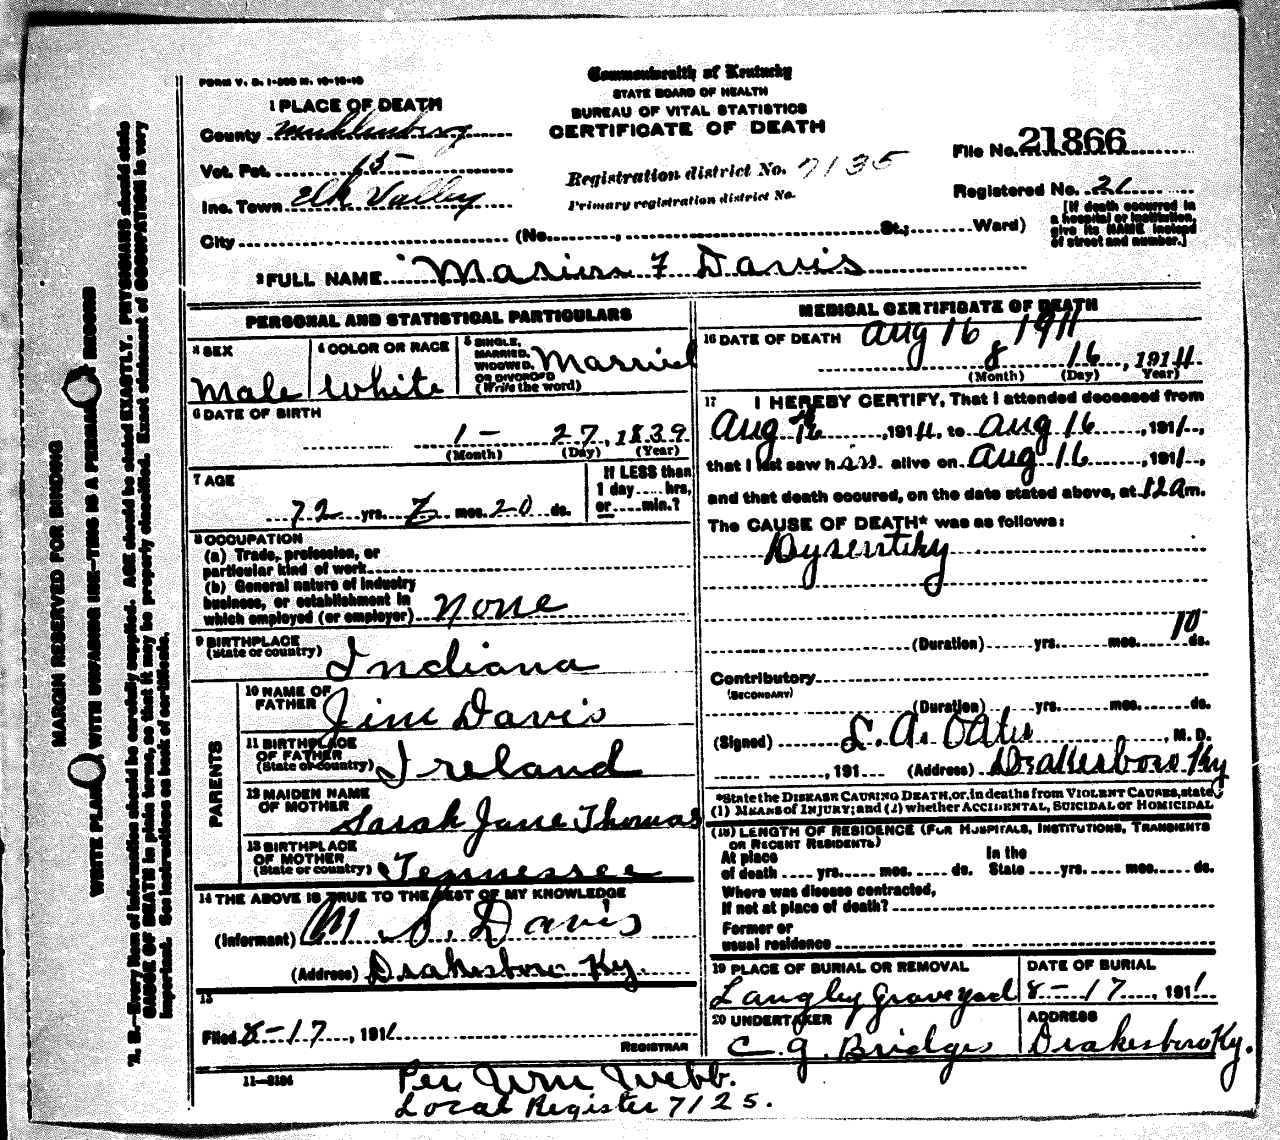 FORM V. S. 1-200 M. 10-10-10
Commonwealth of Kentucky
STATE BOARD OF HEALTH
BUREAU OF VITAL STATISTICS
CERTIFICATE OF DEATH
1 PLACE OF DEATH
County Muhlenberg
Vot. Pct. 15
Inc. Town Elk Valley
City (No. , St.; Ward)
Registration district No. 7135
Primary registration district No.
File No. 21866
Registered No. 21
[If death occurred in a hospital or institution, give its NAME instead of street and number.]
2 FULL NAME Marion F Davis
PERSONAL AND STATISTICAL PARTICULARS
3 SEX Male
4 COLOR OR RACE White
5 SINGLE, MARRIED, WIDOWED, OR DIVORCED (Write the word) Married
6 DATE OF BIRTH
1 - 27, 1839
(Month) (Day) (Year)
7 AGE
72 yrs. 7 mos. 20 ds.
If LESS than 1 day .... hrs, or .... min.?
8 OCCUPATION
(a) Trade, profession, or
particular kind of work
(b) General nature of industry
business, or establishment in
which employed (or employer) none
9 BIRTHPLACE
(State or country) Indiana
PARENTS
10 NAME OF FATHER Jim Davis
11 BIRTHPLACE OF FATHER (State or country) Ireland
12 MAIDEN NAME OF MOTHER Sarah Jane Thomas
13 BIRTHPLACE OF MOTHER (State or country) Tennessee
14 THE ABOVE IS TRUE TO THE BEST OF MY KNOWLEDGE
(Informant) M. S. Davis
(Address) Drakesboro Ky.
15
Filed 8-17, 1911
REGISTRAR
11-8184
Per Wm Webb.
Local Register 7125.
MEDICAL CERTIFICATE OF DEATH
16 DATE OF DEATH Aug 16 1911
8 16, 1911
(Month) (Day) (Year)
17 I HEREBY CERTIFY, That I attended deceased from
Aug , 1911, to Aug 16, 1911,
that I last saw him alive on Aug 16, 1911,
and that death occured, on the date stated above, at 12 am.
The CAUSE OF DEATH* was as follows:
Dysentery
(Duration) yrs. mos. 10 ds.
Contributory
(SECONDARY)
(Duration) yrs. mos. ds.
(Signed) L. A. Oates, M. D.
, 191 (Address) Drakesboro Ky
*State the DISEASE CAUSING DEATH, or, in deaths from VIOLENT CAUSES, state
(1) MEANS of INJURY; and (2) whether ACCIDENTAL, SUICIDAL or HOMICIDAL
(18) LENGTH OF RESIDENCE (FOR HOSPITALS, INSTITUTIONS, TRANSIENTS
OR RECENT RESIDENTS)
At place of death .... yrs. mos. ds. In the State yrs. mos. ds.
Where was disease contracted,
If not at place of death?
Former or
usual residence
19 PLACE OF BURIAL OR REMOVAL
Langley Graveyard
DATE OF BURIAL
8-17, 1911
20 UNDERTAKER
C. G. Bridges
ADDRESS
Drakesboro Ky.
MARGIN RESERVED FOR BINDING
WRITE PLAINLY, WITE UNFADING INK—THIS IS A PERMANENT RECORD
N. B.—Every item of information should be carefully supplied. AGE should be stated EXACTLY. PHYSICIANS should state
CAUSE OF DEATH in plain terms, so that it may be properly classified. Exact statement of OCCUPATION is very
important. See instructions on back of certificate.